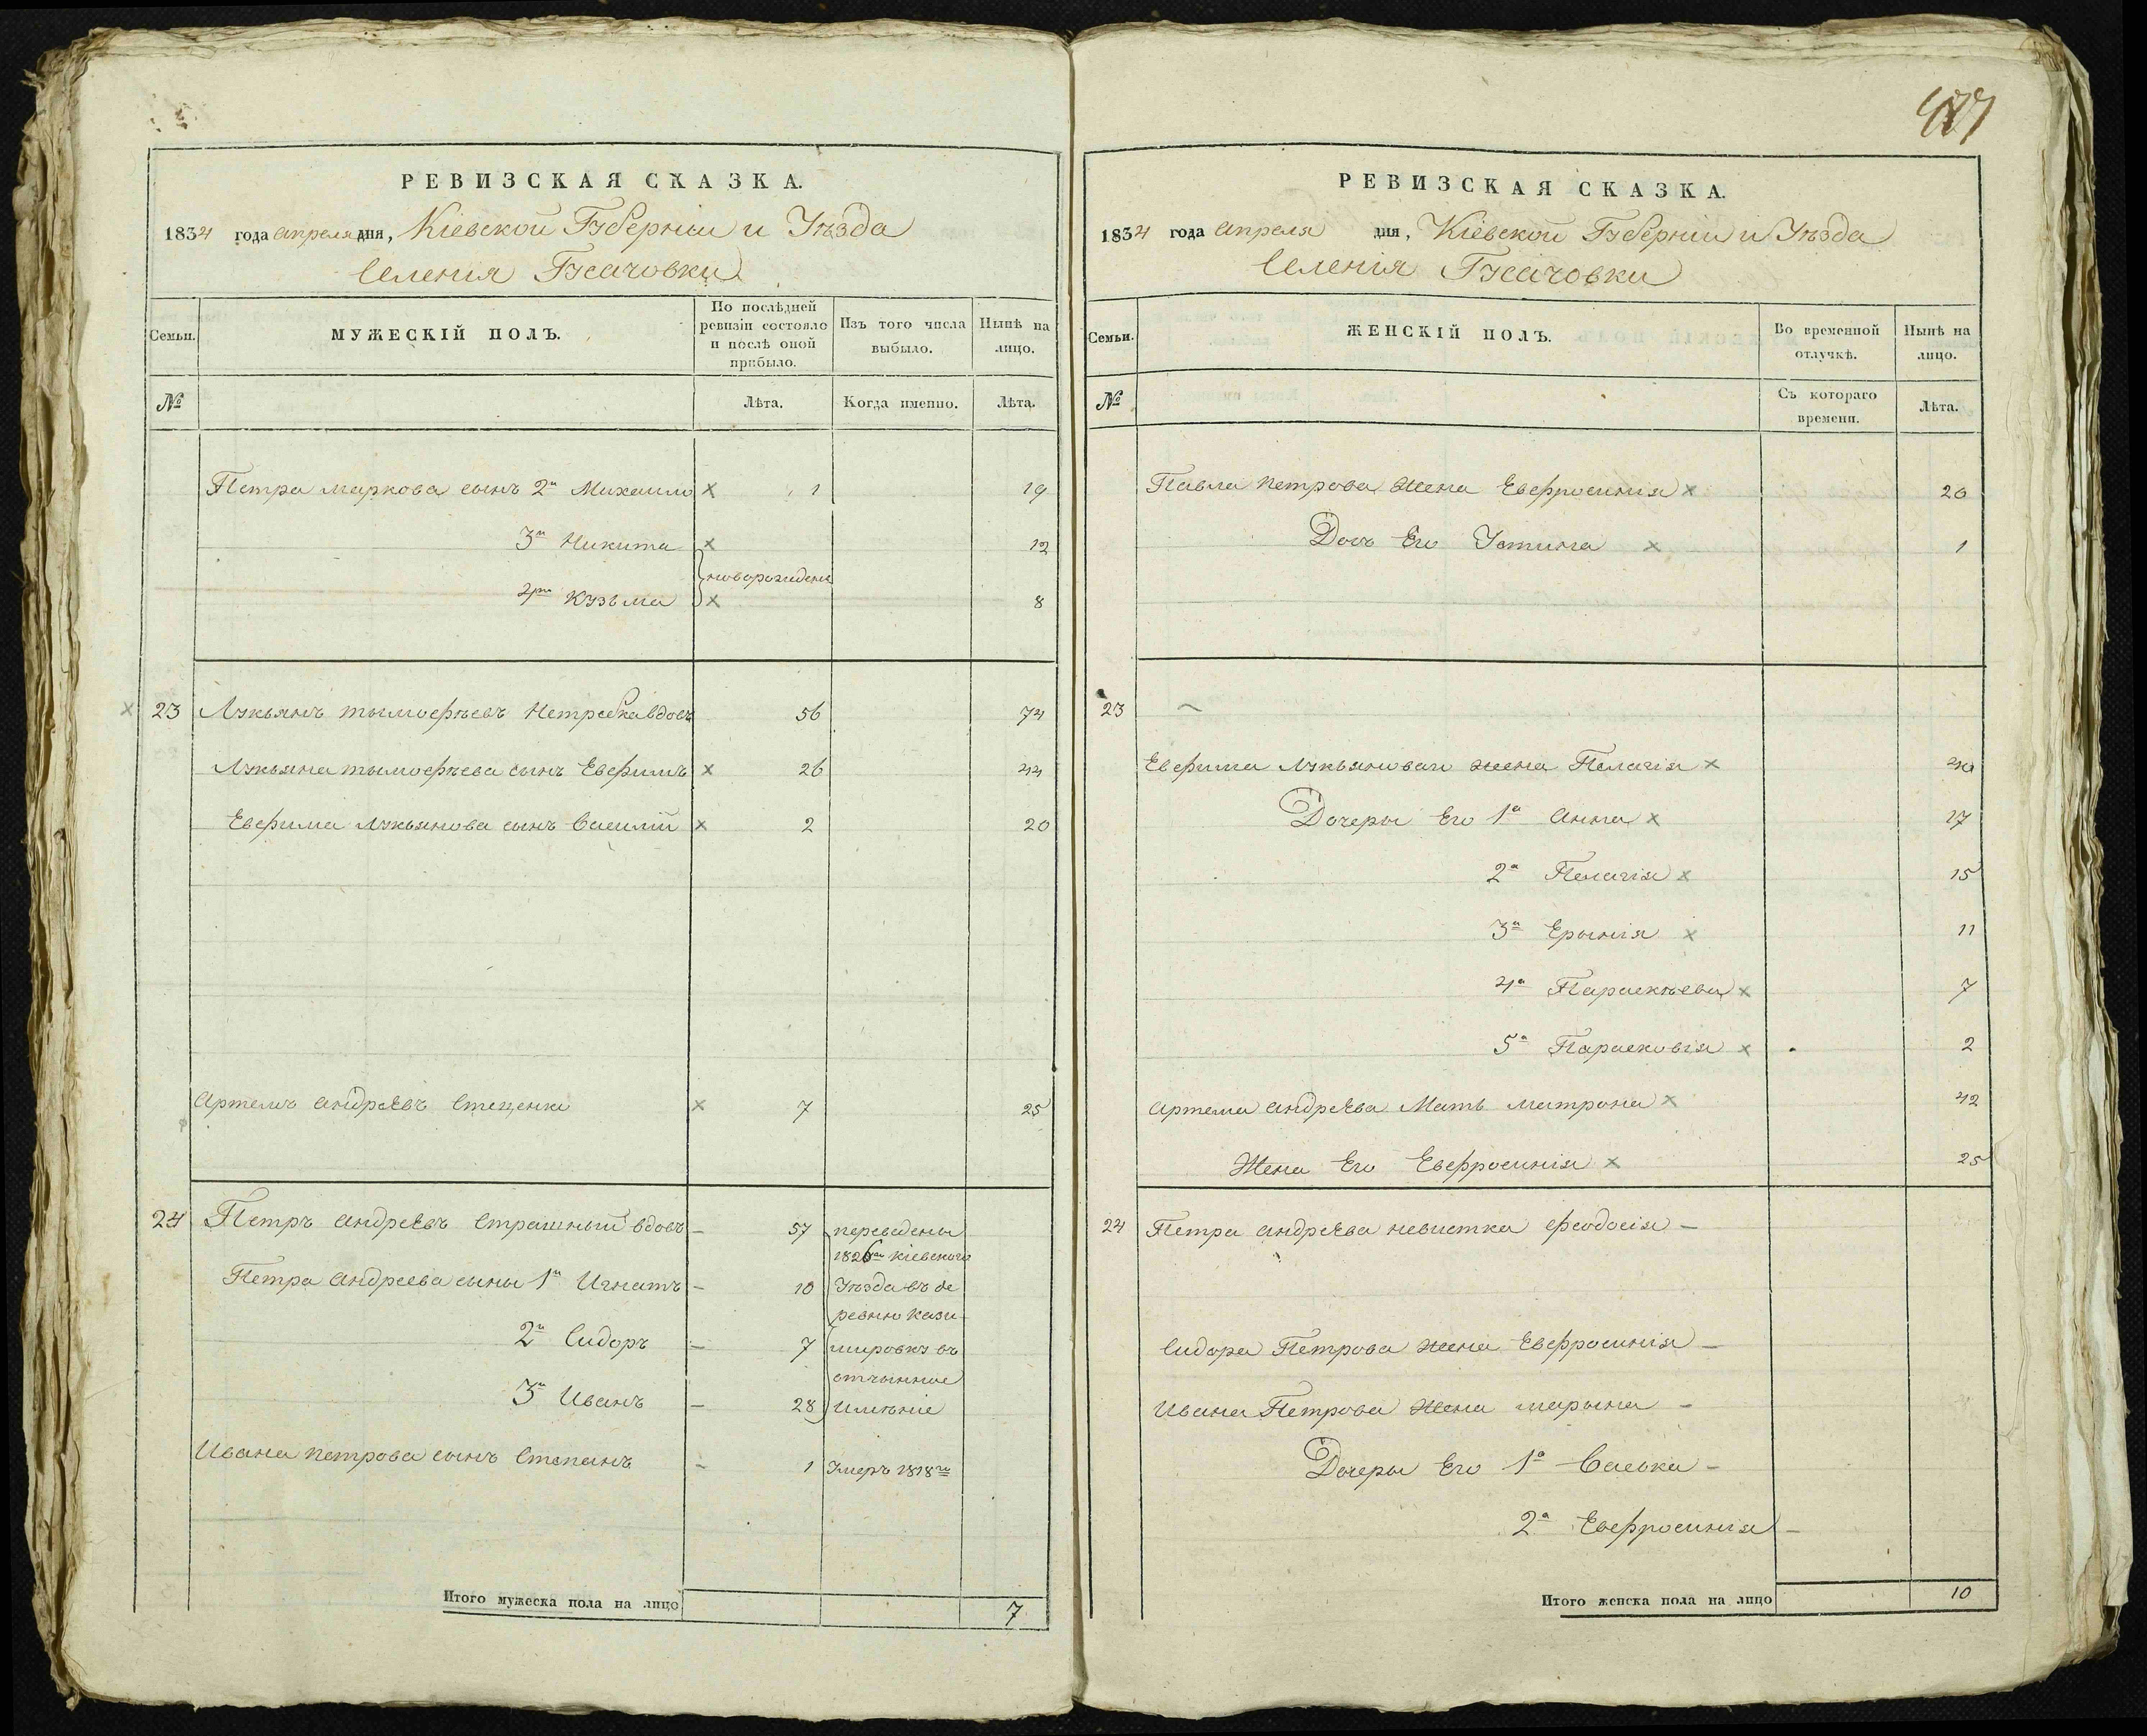 РЕВИЗСКАЯ СКАЗКА.
1834 года апреля дня, Кіевской Губерніи и Уѣзда
Селенія Гусачовки
Семьи.
МУЖЕСКІЙ ПОЛЪ.
По послѣдней ревизіи состояло и послѣ оной прибыло.
Изъ того числа выбыло.
Нынѣ на лицо.
№
Лѣта.
Когда именно.
Лѣта.
Петра маркова сынъ 2й Михаило х 1 19
3й Никита х 12
новорожденные
4й Кузьма х 8
х 23 Лукьянъ тымофѣевъ Нетребка вдовъ 56 74
Лукьяна тымофѣева сынъ Евфимъ х 26 44
Евфима Лукьянова сынъ Василій х 2 20
Артемъ андрѣевъ Стеценко х 7 25
24 Петръ андрѣевъ Страшный вдовъ – 57 переведены
1826го кіевского
Петра андреева сыны 1й Игнатъ – 10 Уѣзда въ де
ревню Кази-
2й Сидоръ – 7 мировку въ
отчынное
3й Иванъ – 28 Имѣніе
Ивана петрова сынъ Степанъ – 1 Умеръ 1818го
Итого мужеска пола на лицо 7
477
РЕВИЗСКАЯ СКАЗКА.
1834 года апреля дня, Кіевской Губерніи и Уѣзда
Селенія Гусачовки
Семьи.
ЖЕНСКІЙ ПОЛЪ.
Во временной отлучкѣ.
Нынѣ на лицо.
№
Съ котораго времени.
Лѣта.
Павла петрова Жена Евфросинія х 20
Дочь Его Устина х 1
23
Евфима Лукьянова жена Пелагія х 40
Дочеры Его 1а Анна х 17
2а Пелагія х 15
3а Ерынія х 11
4а Параскѣева х 7
5а Парасковія х 2
Артема андрѣева Мать матрона х 42
Жена Его Евфросинія х 25
24 Петра андрѣева невистка феодосія –
Сидора Петрова жена Евфросинія –
Ивана Петрова Жена марына –
Дочеры Его 1а Васька –
2а Евфросинія –
Итого женска пола на лицо 10